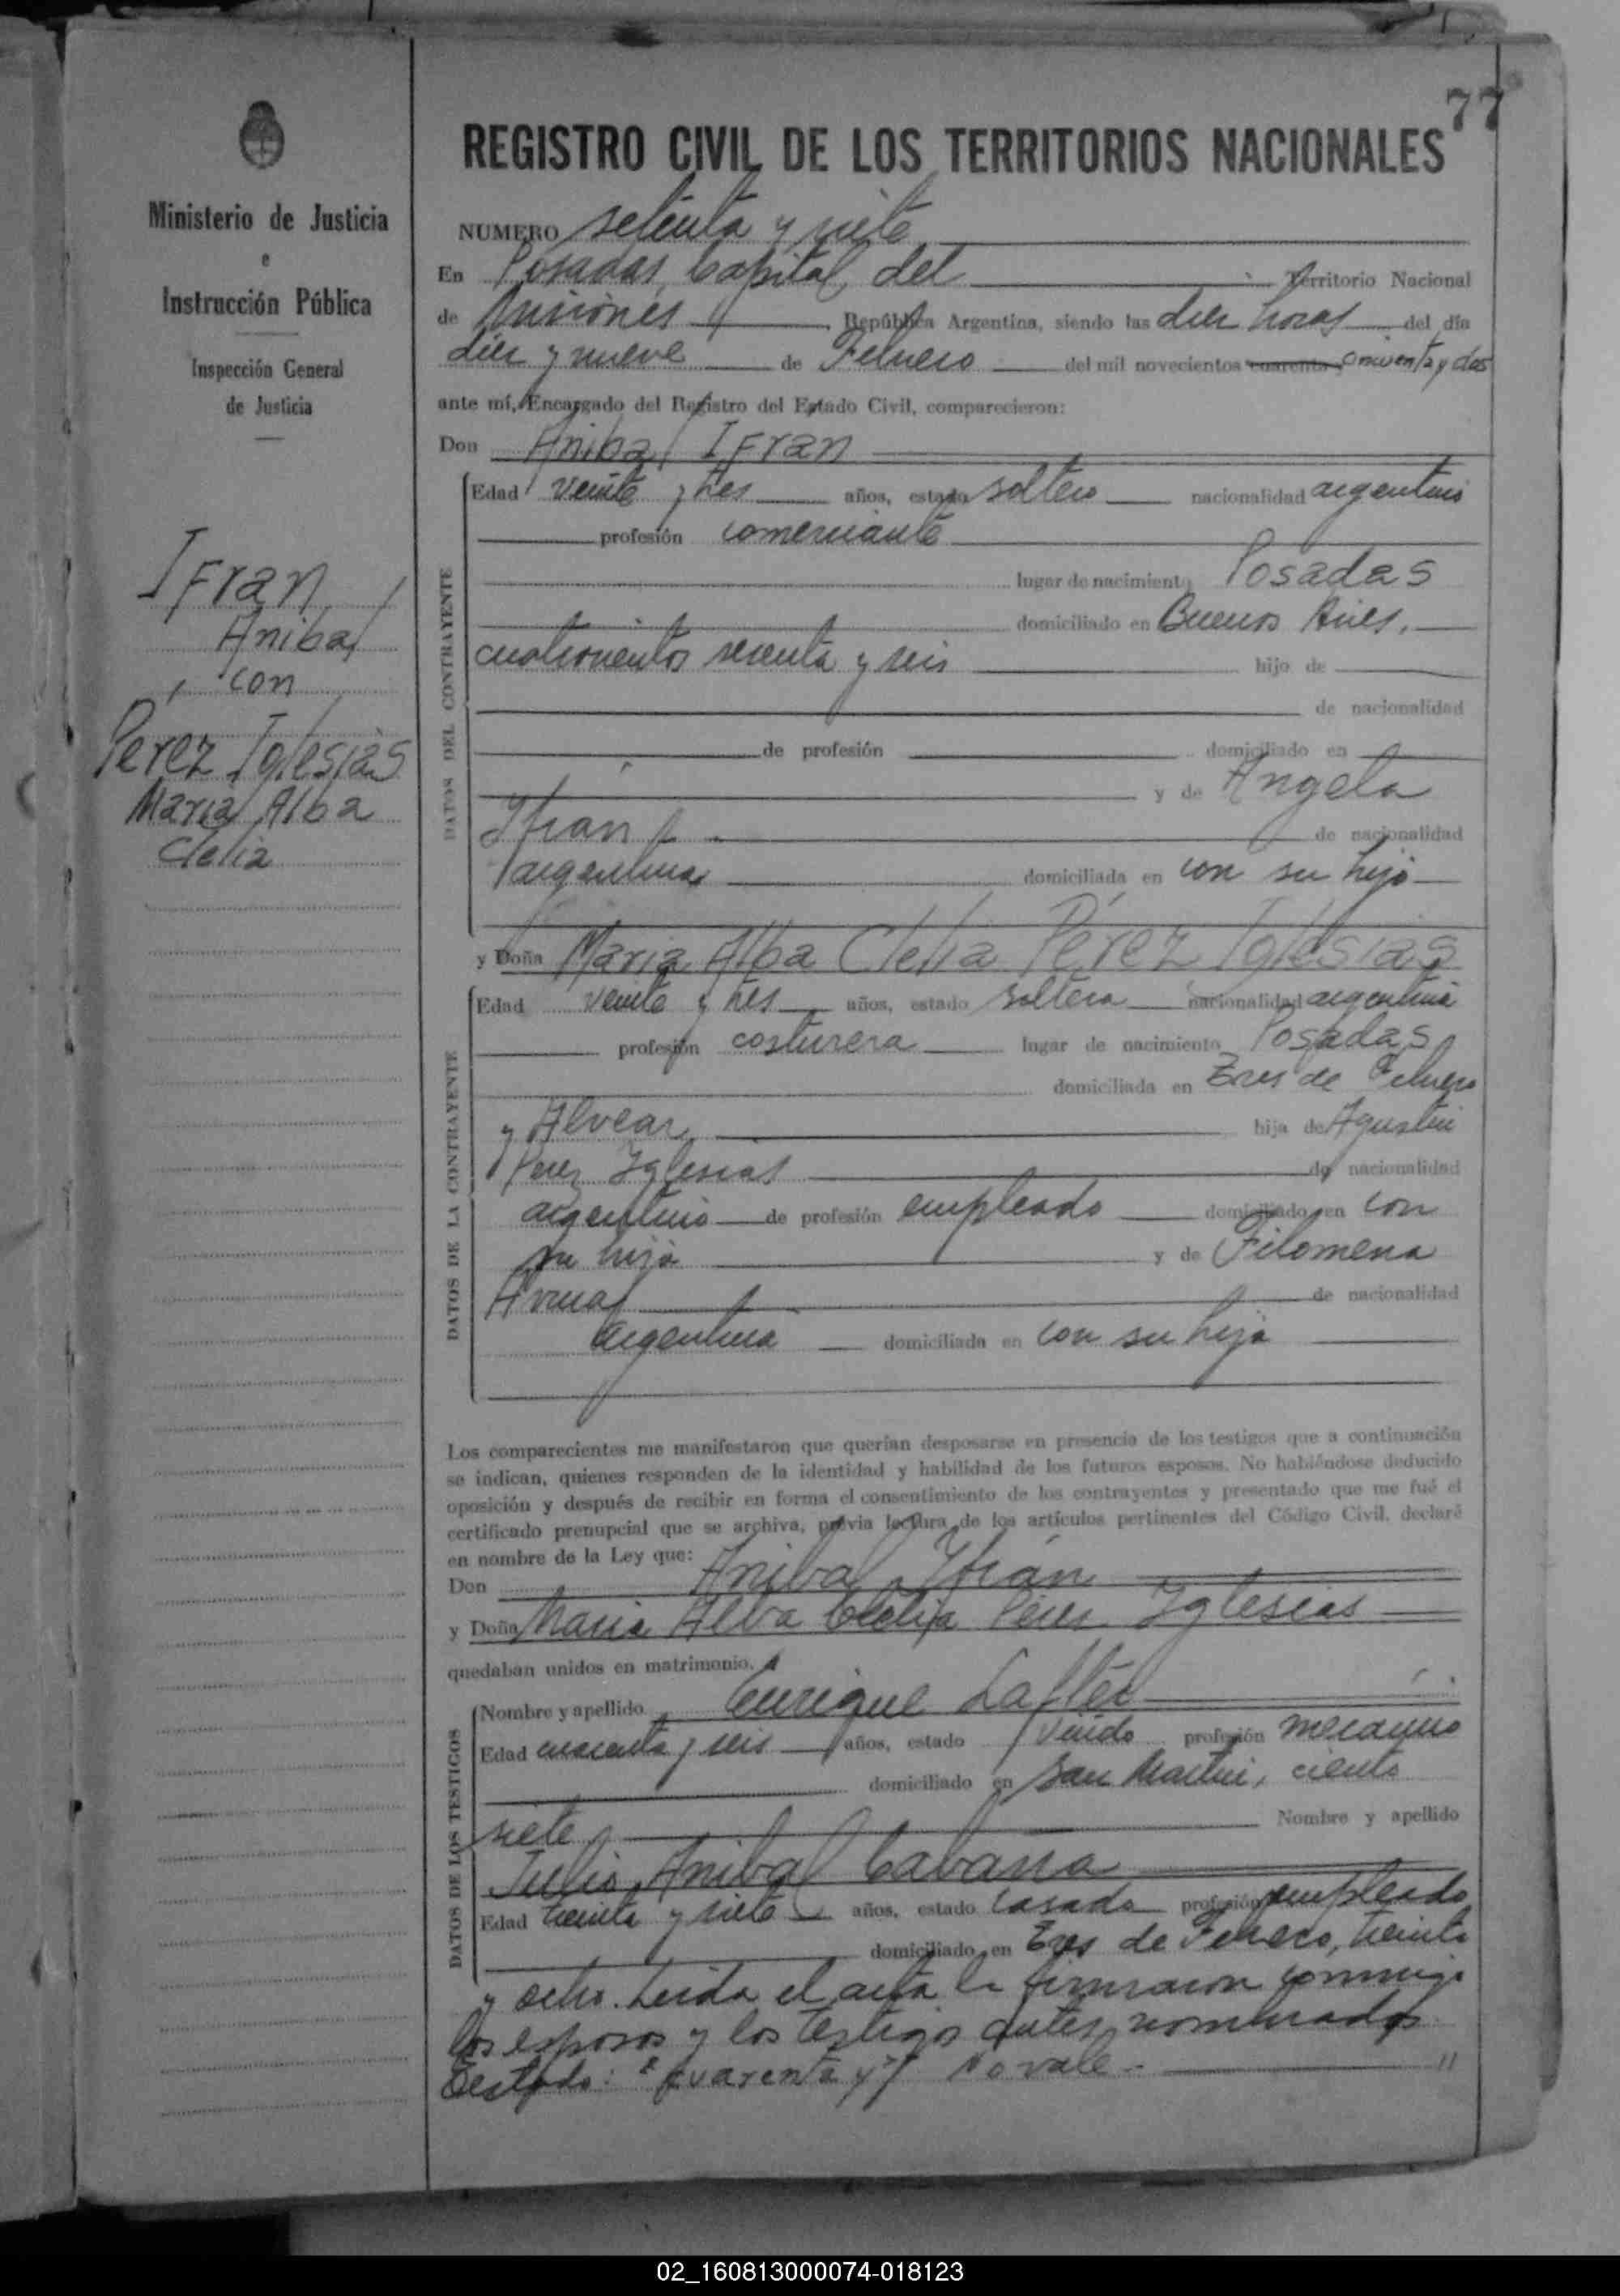 77
REGISTRO CIVIL DE LOS TERRITORIOS NACIONALES
Ministerio de Justicia
e
Instrucción Pública
Inspección General
de Justicia
Ifran
Anibal
con
Perez Iglesias
Maria Alba
Clelia
NUMERO setenta y siete
En Posadas, Capital del Territorio Nacional
de Misiones República Argentina, siendo las diez horas del día
diez y nueve de Febrero del mil novecientos cuarenta y cincuenta y dos
ante mí, Encargado del Registro del Estado Civil, comparecieron:
Don Anibal Ifran
DATOS DEL CONTRAYENTE
Edad veinte y tres años, estado soltero nacionalidad argentino
profesión comerciante
lugar de nacimiento Posadas
domiciliado en Buenos Aires,
cuatrocientos sesenta y seis hijo de
de nacionalidad
de profesión domiciliado en
y de Angela
Ifrán de nacionalidad
argentina domiciliada en con su hijo
y Doña Maria Alba Clelia Pérez Iglesias
DATOS DE LA CONTRAYENTE
Edad veinte y tres años, estado soltera nacionalidad argentina
profesión costurera lugar de nacimiento Posadas
domiciliada en Tres de Febrero
y Alvear, hija de Agustin
Perez Iglesias de nacionalidad
argentino de profesión empleado domiciliado en con
su hija y de Filomena
de nacionalidad
argentina domiciliada en con su hija
Los comparecientes me manifestaron que querían desposarse en presencia de los testigos que a continuación
se indican, quienes responden de la identidad y habilidad de los futuros esposos. No habiéndose deducido
oposición y después de recibir en forma el consentimiento de los contrayentes y presentado que me fué el
certificado prenupcial que se archiva, previa lectura de los artículos pertinentes del Código Civil, declaré
en nombre de la Ley que:
Don Anibal Ifrán
y Doña Maria Alba Clelia Pérez Iglesias
quedaban unidos en matrimonio.
DATOS DE LOS TESTIGOS
Nombre y apellido Enrique
Edad cuarenta y seis años, estado viudo profesión mecanico
domiciliado en San Martin, ciento
siete Nombre y apellido
Julio Anibal Cabaña
Edad treinta y siete años, estado casado profesión empleado
domiciliado en Tres de Febrero, treinta
y ocho. Leida el acta la firmaron conmigo
los esposos y los testigos antes nombrados.
Testado: "cuarenta y" No vale.
02_160813000074-018123